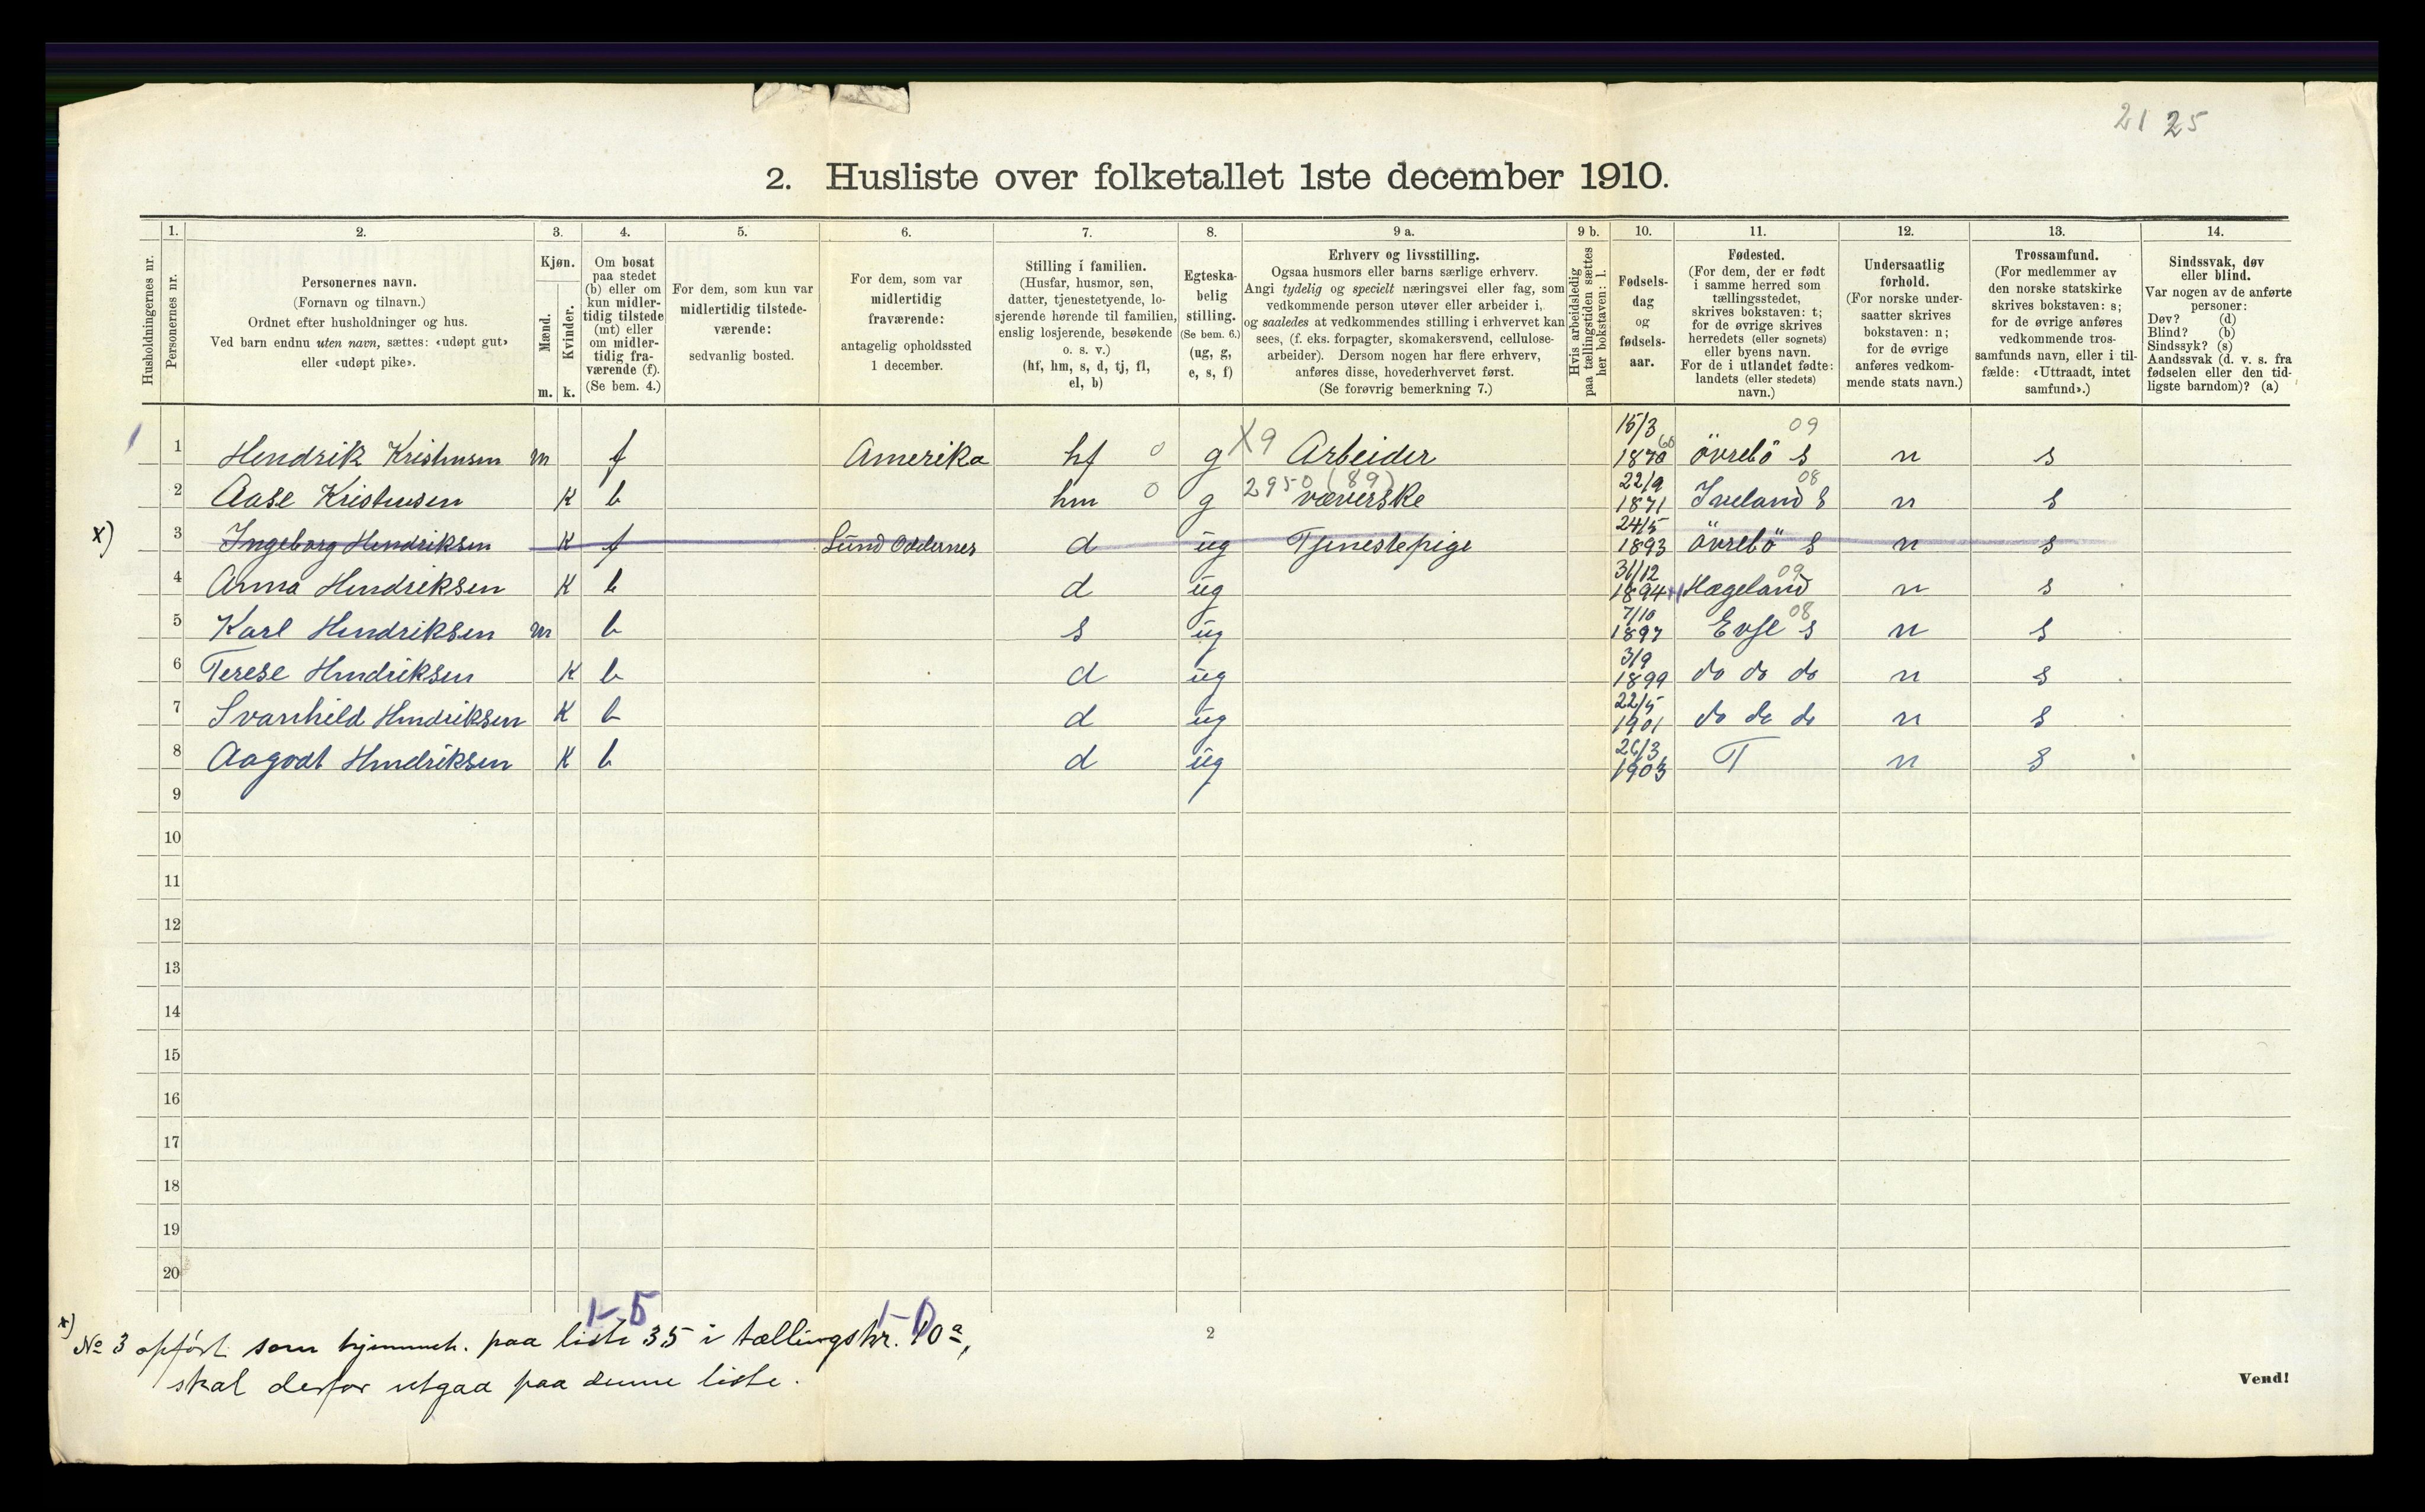 21 25
2. Husliste over folketallet 1ste december 1910.
1. 2. 3. 4. 5. 6. 7. 8. 9 a. 9 b. 10. 11. 12. 13. 14.
Husholdningernes nr.
Personernes nr.
Personernes navn.
(Fornavn og tilnavn.)
Ordnet efter husholdninger og hus.
Ved barn endnu uten navn, sættes: «udøpt gut»
eller «udøpt pike».
Kjøn.
Mænd.
Kvinder.
m. k.
Om bosat
paa stedet
(b) eller om
kun midler-
tidig tilstede
(mt) eller
om midler-
tidig fra-
værende (f).
(Se bem. 4.)
For dem, som kun var
midlertidig tilstede-
værende:
sedvanlig bosted.
For dem, som var
midlertidig
fraværende:
antagelig opholdssted
1 december.
Stilling i familien.
(Husfar, husmor, søn,
datter, tjenestetyende, lo-
sjerende hørende til familien,
enslig losjerende, besøkende
o. s. v.)
(hf, hm, s, d, tj, fl,
el, b)
Egteska-
belig
stilling.
(Se bem. 6.)
(ug, g,
e, s, f)
Erhverv og livsstilling.
Ogsaa husmors eller barns særlige erhverv.
Angi tydelig og specielt næringsvei eller fag, som
vedkommende person utøver eller arbeider i,
og saaledes at vedkommendes stilling i erhvervet kan
sees, (f. eks. forpagter, skomakersvend, cellulose-
arbeider). Dersom nogen har flere erhverv,
anføres disse, hovederhvervet først.
(Se forøvrig bemerkning 7.)
Hvis arbeidsledig
paa tællingstiden sættes
her bokstaven: l.
Fødsels-
dag
og
fødsels-
aar.
Fødested.
(For dem, der er født
i samme herred som
tællingsstedet,
skrives bokstaven: t;
for de øvrige skrives
herredets (eller sognets)
eller byens navn.
For de i utlandet fødte:
landets (eller stedets)
navn.)
Undersaatlig
forhold.
(For norske under-
saatter skrives
bokstaven: n;
for de øvrige
anføres vedkom-
mende stats navn.)
Trossamfund.
(For medlemmer av
den norske statskirke
skrives bokstaven: s;
for de øvrige anføres
vedkommende tros-
samfunds navn, eller i til-
fælde: «Uttraadt, intet
samfund».)
Sindssvak, døv
eller blind.
Var nogen av de anførte
personer:
Døv? (d)
Blind? (b)
Sindssyk? (s)
Aandssvak (d. v. s. fra
fødselen eller den tid-
ligste barndom)? (a)
1 Hendrik Kristensen m f Amerika hf 0 g X9 Arbeider 15/3 1870 68 övrebö s 09 n s
2 Aase Kristensen K b hm 0 g 2950 (89) væverske 22/9 1871 Iveland s 08 n s
x) 3 Ingeborg Hendriksen K f Lund Oddernes d ug Tjenestepige 24/5 1893 övrebö s n s
4 Anna Hendriksen K b d ug 31/12 1894 Hægeland 09 n s
5 Karl Hendriksen m b s ug 7/10 1897 Evje s 08 n s
6 Terese Hendriksen K b d ug 3/9 1899 do do do n s
7 Svanhild Hendriksen K b d ug 22/5 1901 do do do n s
8 Aagodt Hendriksen K b d ug 26/3 1903 T n s
9
10
11
12
13
14
15
16
17
18
19
20
1-5 1-0
x) No 3 opfört som hjemmeh. paa liste 35 i tællingskr. 10a,
skal derfor utgaa paa denne liste.
2
Vend!